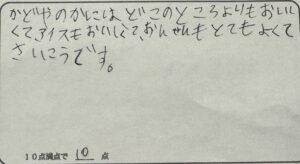 かどやのかにはどこのところよりもおいし
くて、アイスもおいしくて、おんせんもとてもよくて
さいこうです。
10点満点で 10 点